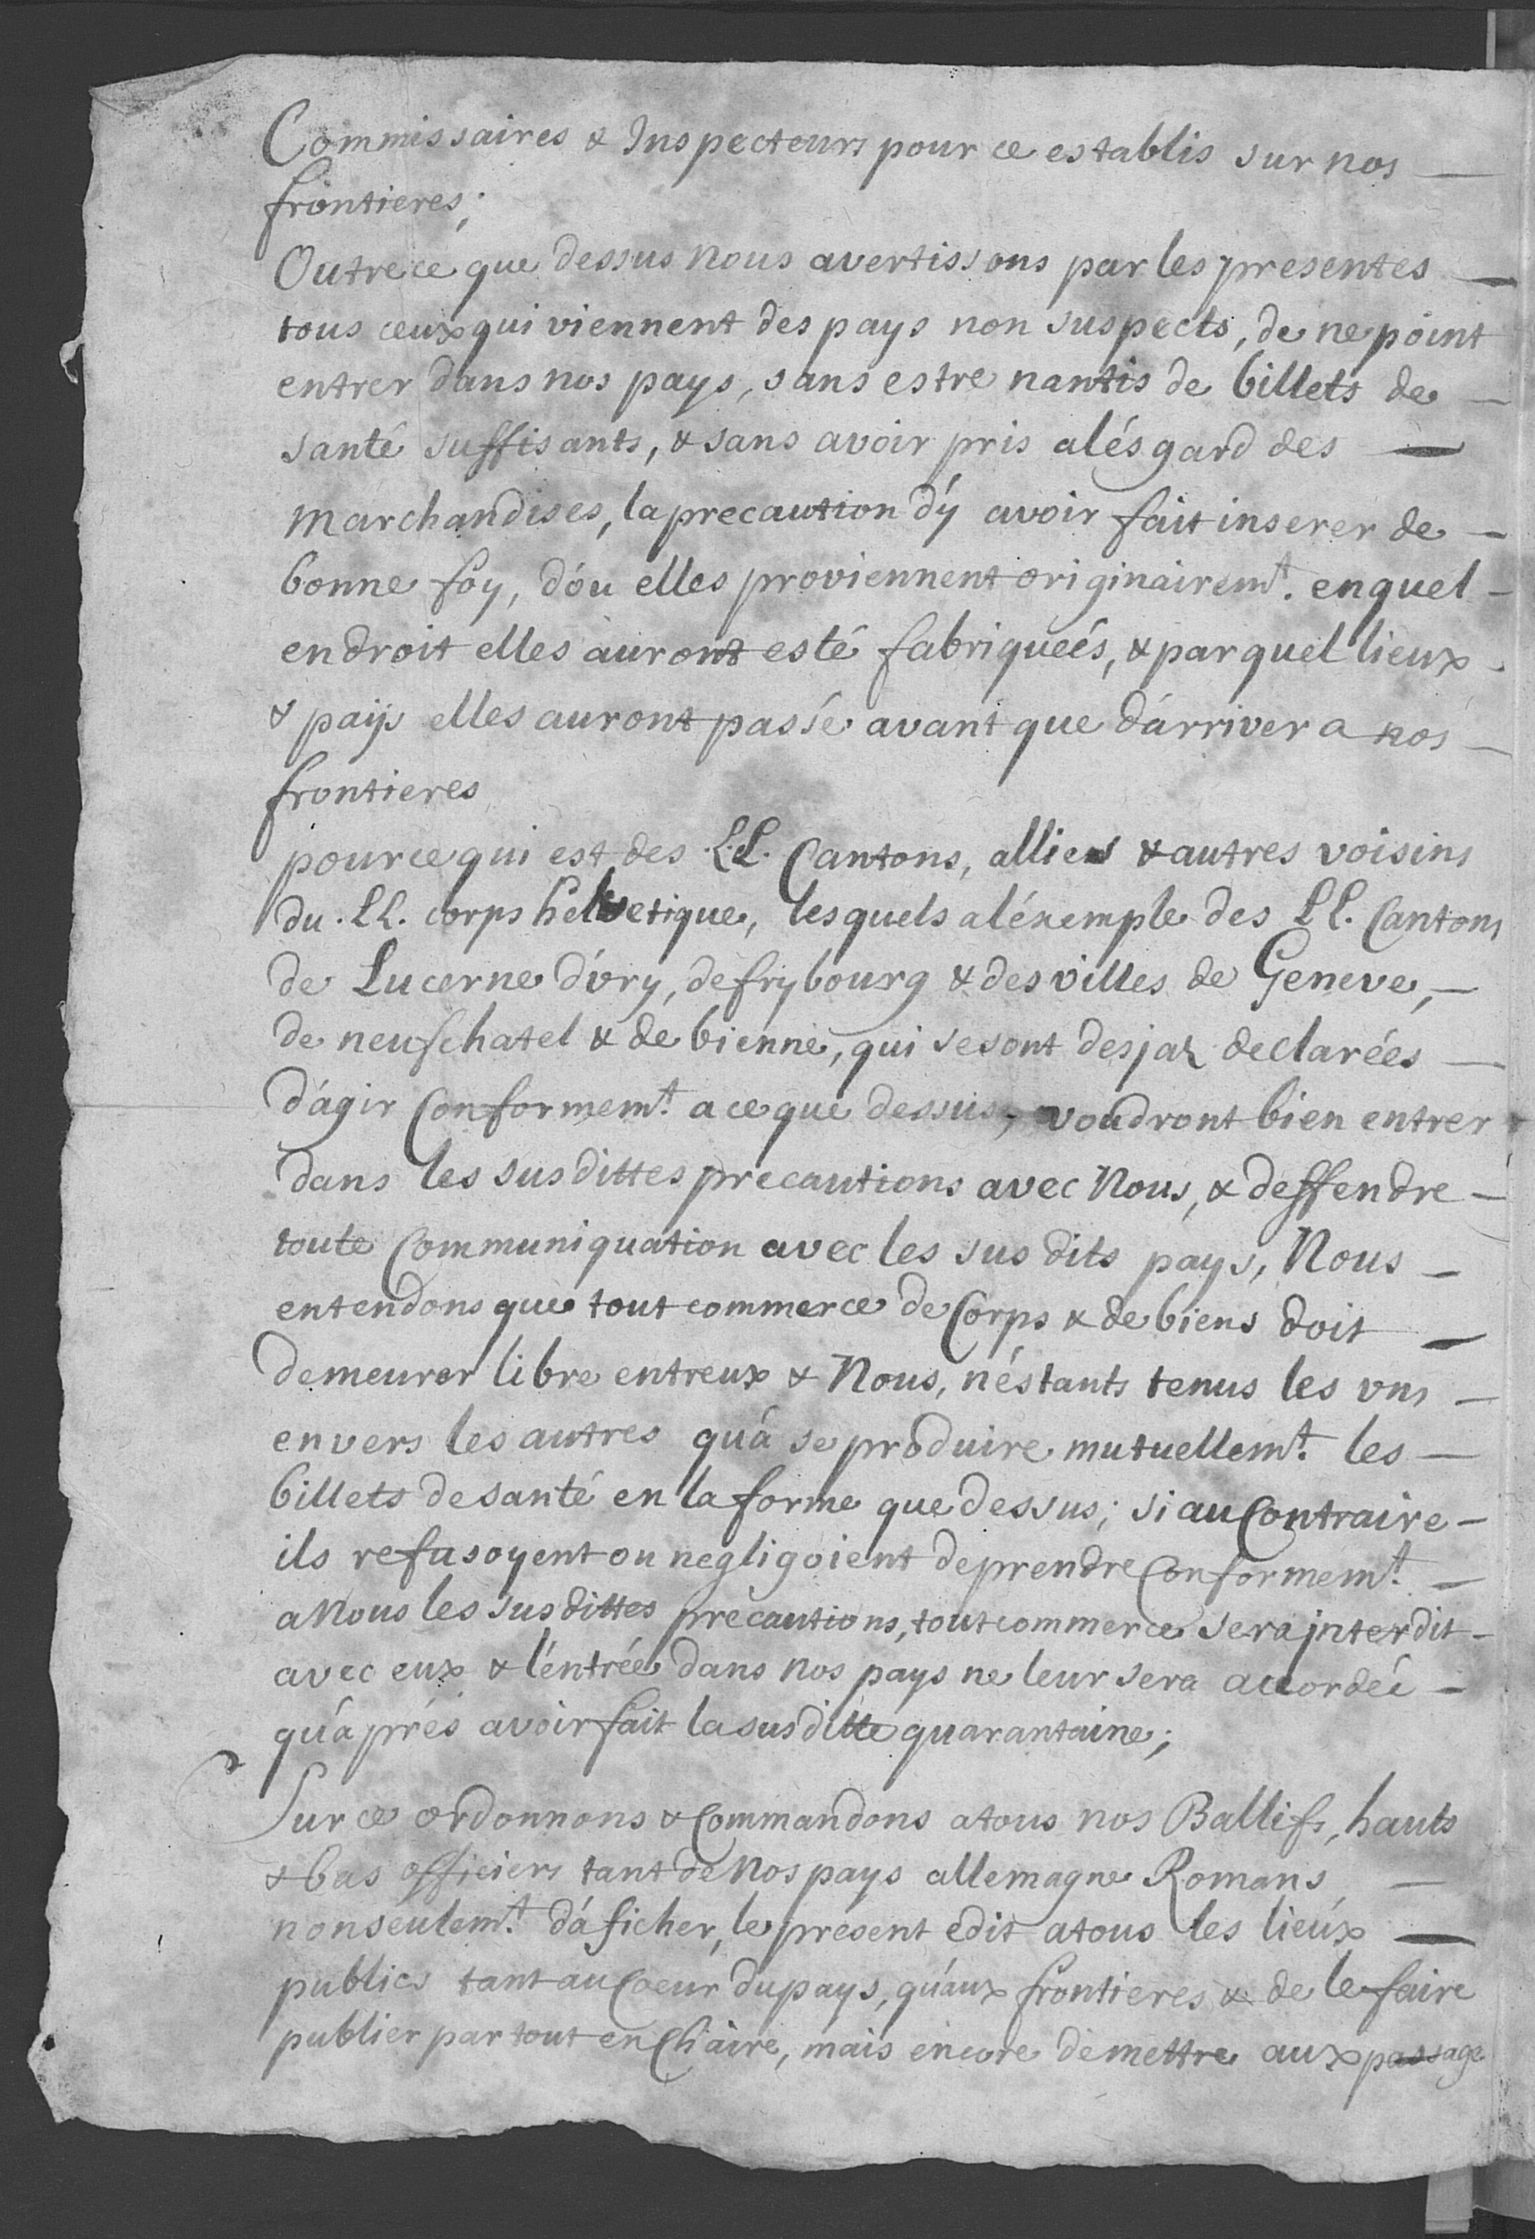 Commissaires & Inspecteurs pour ce establis sur nos —
frontieres;
Outre ce que dessus nous avertissons par les presentes —
tous ceux qui viennent des pays non suspects, de ne point
entrer dans nos pays, sans estre nantis de billets de —
santé suffisants, & sans avoir pris a lésgard des —
marchandises, la precaution d'y avoir fait inserer de —
bonne foy, d'óu elles proviennent originairemt. en quel —
endroit elles auront esté fabriqueés, & par quel lieux —
& paijs elles auront passé avant que d'arriver a nos —
frontieres
pour ce qui est des L.L. Cantons, alliés & autres voisins
du LL. corps helvetique, lesquels a léxemple des LL. Cantons
de Lucerne d'vry, de frybourg & des villes de Geneve, —
de neufchatel & de bienne, qui se sont desjaz declarées —
d'agir Conformemt. a ce que dessus, voudront bien entrer
dans les susdittes precautions avec Nous, & deffendre —
toute Communiquation avec les susdits pays, Nous —
entendons que tout commerce de Corps & de biens doit —
demeurer libre entreux & Nous, n'éstants tenus les vns —
envers les autres qu'á se produire mutuellemt. les —
billets de santé en la forme que dessus; si au Contraire —
ils refusoyent ou negligoient de prendre Conformemt. —
a Nous les susdittes precautions, tout commerce sera jnterdit —
avec eux & l'éntrée dans nos pays ne leur sera accordéé —
qu'áprés avoir fait la susditte quarantaine;
Sur ce ordonnons & Commandons a tous nos Ballifs, hauts
& bas officiers tant de Nos pays allemagne Romans —
non seulemt. d'áficher, le present edit a tous les lieux —
publics tant au Coeur du pays, qu'aux frontieres & de le faire
publier par tout en Chaire, mais encore de mettre aux passage